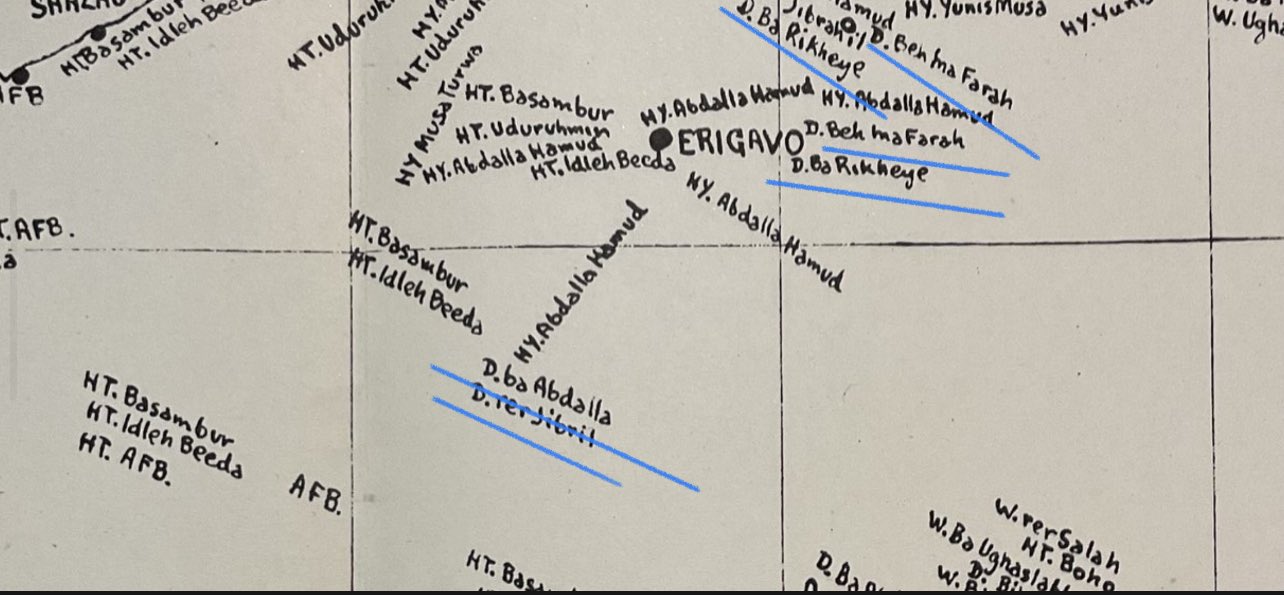 HT. Basambur
HT. Idleh Beeda
AFB
HT. Uduruh
HY. A
HT. Uduruh
HY Musa Turwa
D. Ba Rikheye
Jibrahil
amud
D. Beh ma Farah
HY. Yunis Musa
HY. Yunis
W. Ugha
HT. Basambur
HT. Uduruhmin
HY. Abdalla Hamud
HT. Idleh Beeda
HY. Abdalla Hamud
ERIGAVO
HY. Abdalla Hamud
D. Beh ma Farah
D. Ba Rikheye
HY. Abdalla Hamud
T. AFB.
a
HT. Basambur
HT. Idleh Beeda
HY. Abdalla Hamud
D. ba Abdalla
D. rer Jibril
HT. Basambur
HT. Idleh Beeda
HT. AFB.
AFB.
HT. Basa
W. rer Salah
HT. Boho
W. Ba Ughaslab
D. Bi
W. B
D. Ba